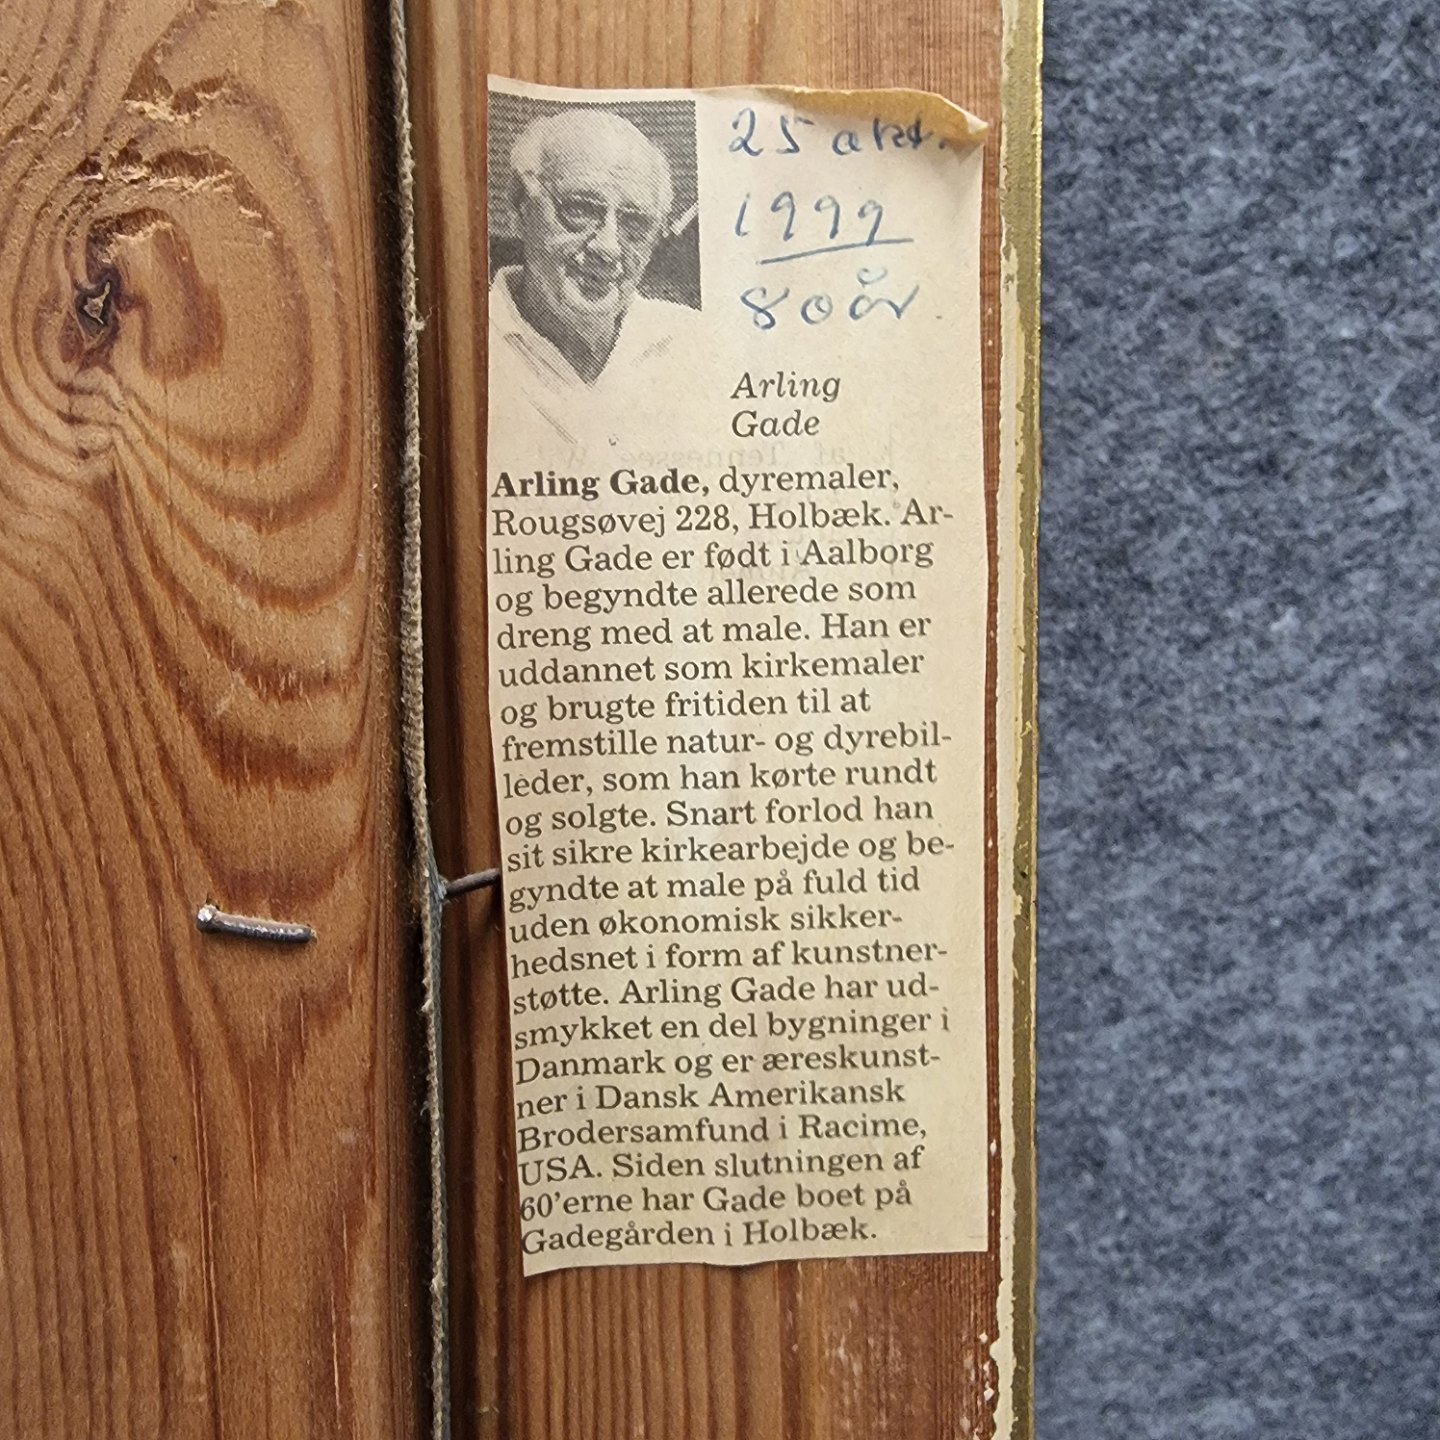 25 okt.
1999
80 år
Arling
Gade
Arling Gade, dyremaler,
Rougsøvej 228, Holbæk. Ar-
ling Gade er født i Aalborg
og begyndte allerede som
dreng med at male. Han er
uddannet som kirkemaler
og brugte fritiden til at
fremstille natur- og dyrebil-
leder, som han kørte rundt
og solgte. Snart forlod han
sit sikre kirkearbejde og be-
gyndte at male på fuld tid
uden økonomisk sikker-
hedsnet i form af kunstner-
støtte. Arling Gade har ud-
smykket en del bygninger i
Danmark og er æreskunst-
ner i Dansk Amerikansk
Brodersamfund i Racime,
USA. Siden slutningen af
60'erne har Gade boet på
Gadegården i Holbæk.